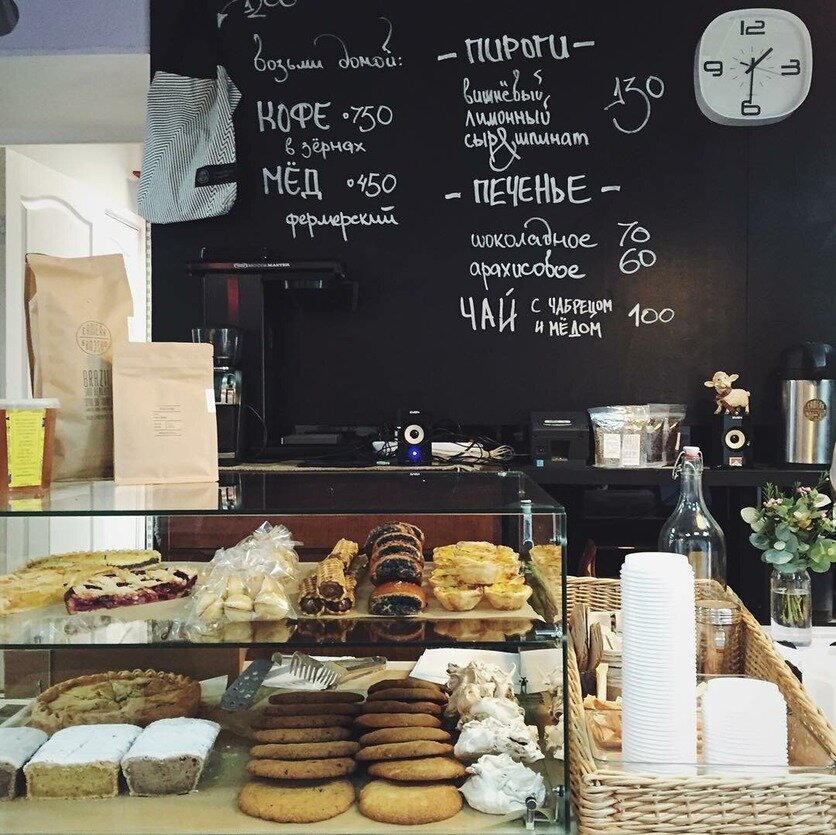 возьми домой:
КОФЕ •750
в зёрнах
МЁД •450
фермерский
– ПИРОГИ –
вишнёвый
лимонный
сыр&шпинат
130
– ПЕЧЕНЬЕ –
шоколадное 70
арахисовое 60
ЧАЙ С ЧАБРЕЦОМ И МЁДОМ 100
12
3
6
9
BRAZIL